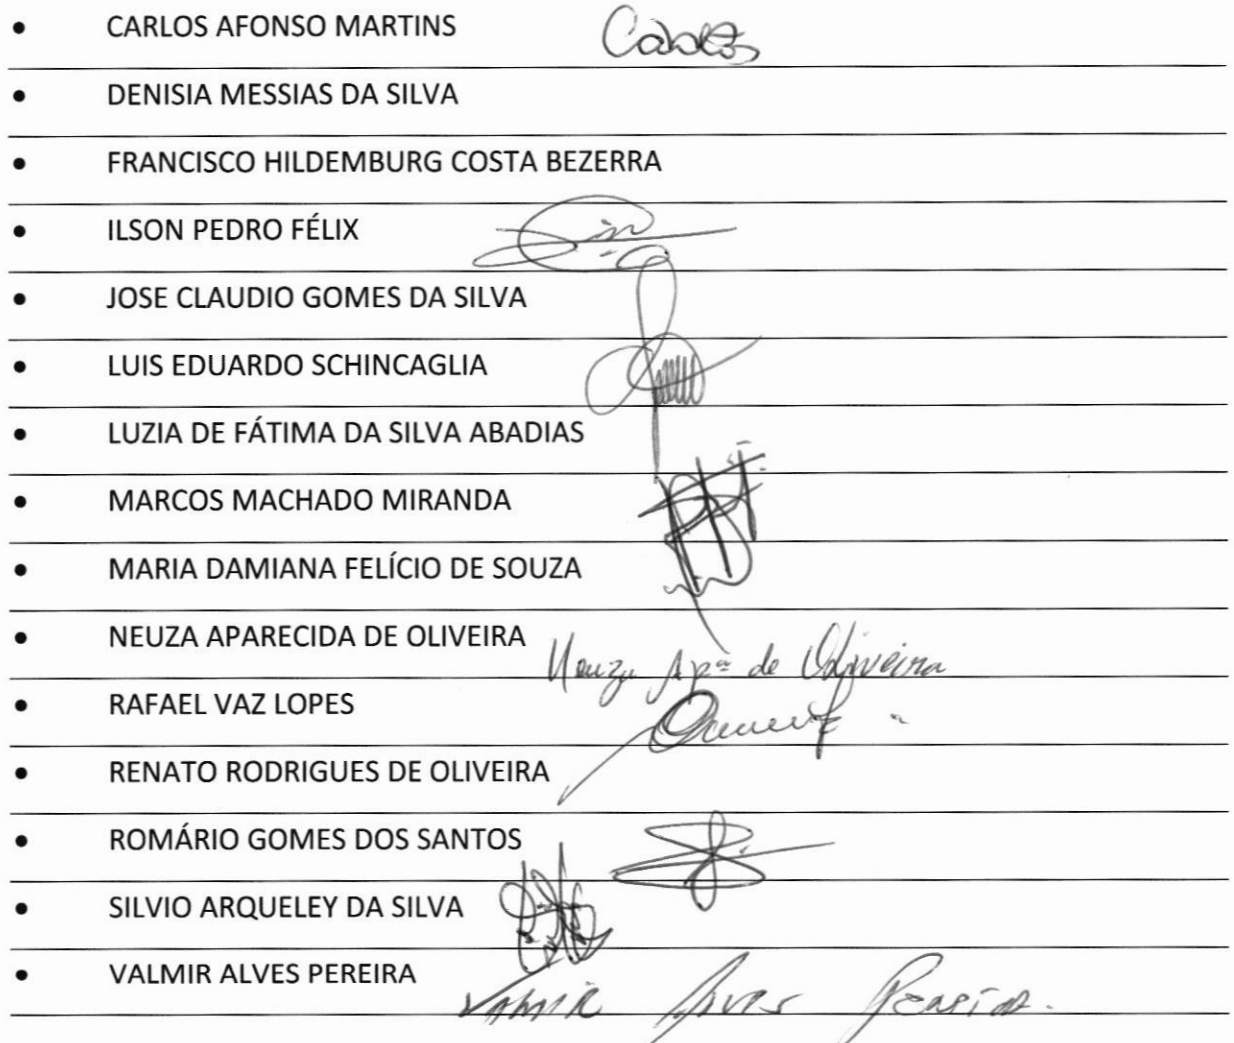 • CARLOS AFONSO MARTINS Carlos
• DENISIA MESSIAS DA SILVA
• FRANCISCO HILDEMBURG COSTA BEZERRA
• ILSON PEDRO FÉLIX
• JOSE CLAUDIO GOMES DA SILVA
• LUIS EDUARDO SCHINCAGLIA
• LUZIA DE FÁTIMA DA SILVA ABADIAS
• MARCOS MACHADO MIRANDA
• MARIA DAMIANA FELÍCIO DE SOUZA
• NEUZA APARECIDA DE OLIVEIRA Neuza Apª de Oliveira
• RAFAEL VAZ LOPES
• RENATO RODRIGUES DE OLIVEIRA
• ROMÁRIO GOMES DOS SANTOS
• SILVIO ARQUELEY DA SILVA
• VALMIR ALVES PEREIRA Valmir Alves Pereira.